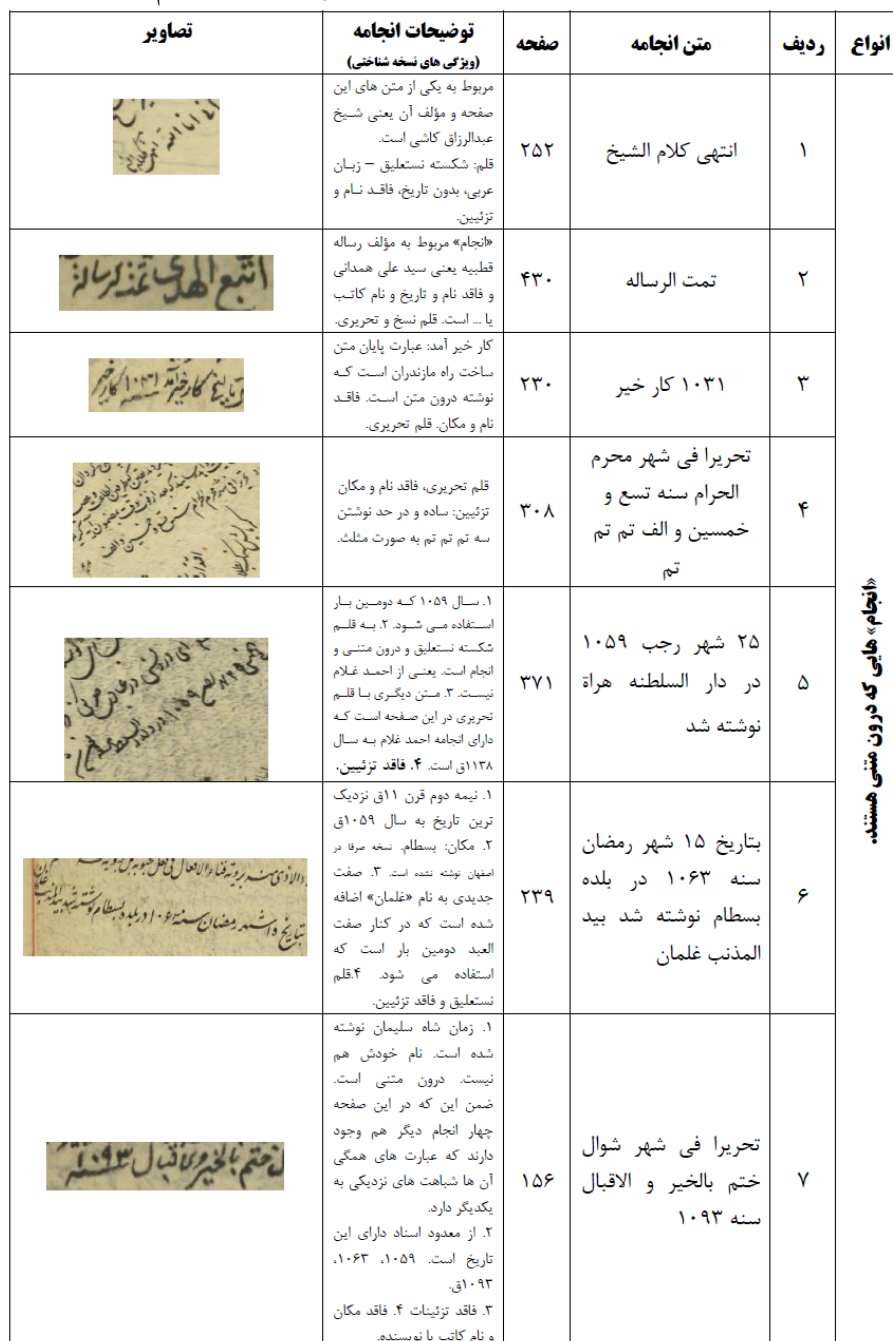 انواع
ردیف
متن انجامه
صفحه
توضیحات انجامه
(ویژگی های نسخه شناختی)
تصاویر
«انجام» هایی که درون متنی هستند.
۱
انتهی کلام الشیخ
۲۵۲
مربوط به یکی از متن های این
صفحه و مؤلف آن یعنی شیخ
عبدالرزاق کاشی است.
قلم: شکسته نستعلیق – زبان
عربی، بدون تاریخ، فاقد نام و
تزئیین.
۲
تمت الرساله
۴۳۰
«انجام» مربوط به مؤلف رساله
قطبیه یعنی سید علی همدانی
و فاقد نام و تاریخ و نام کاتب
یا ... است. قلم نسخ و تحریری.
اتبع الهدی تمت الرسالة
۳
۱۰۳۱ کار خیر
۲۳۰
کار خیر آمد: عبارت پایان متن
ساخت راه مازندران است که
نوشته درون متن است. فاقد
نام و مکان. قلم تحریری.
تاریخ کار خیر آمد ۱۰۳۱ کار خیر
۴
تحریرا فی شهر محرم
الحرام سنه تسع و
خمسین و الف تم تم
تم
۳۰۸
قلم تحریری، فاقد نام و مکان
تزئیین: ساده و در حد نوشتن
سه تم تم تم به صورت مثلث.
۵
۲۵ شهر رجب ۱۰۵۹
در دار السلطنه هراة
نوشته شد
۳۷۱
۱. سال ۱۰۵۹ که دومین بار
استفاده می شود. ۲. به قلم
شکسته نستعلیق و درون متنی و
انجام است. یعنی از احمد غلام
نیست. ۳. متن دیگری با قلم
تحریری در این صفحه است که
دارای انجامه احمد غلام به سال
۱۱۳۸ق است. ۴. فاقد تزئیین.
۶
بتاریخ ۱۵ شهر رمضان
سنه ۱۰۶۳ در بلده
بسطام نوشته شد بید
المذنب غلمان
۲۳۹
۱. نیمه دوم قرن ۱۱ق نزدیک
ترین تاریخ به سال ۱۰۵۹ق
۲. مکان: بسطام. نسخه صرفا در
اصفهان نوشته نشده است. ۳. صفت
جدیدی به نام «غلمان» اضافه
شده است که در کنار صفت
العبد دومین بار است که
استفاده می شود. ۴.قلم
نستعلیق و فاقد تزئیین.
۷
تحریرا فی شهر شوال
ختم بالخیر و الاقبال
سنه ۱۰۹۳
۱۵۶
۱. زمان شاه سلیمان نوشته
شده است. نام خودش هم
نیست. درون متنی است.
ضمن این که در این صفحه
چهار انجام دیگر هم وجود
دارند که عبارت های همگی
آن ها شباهت های نزدیکی به
یکدیگر دارد.
۲. از معدود اسناد دارای این
تاریخ است. ۱۰۵۹، ۱۰۶۳،
۱۰۹۳ق.
۳. فاقد تزئینات ۴. فاقد مکان
و نام کاتب یا نویسنده.
ختم بالخیر و الاقبال سنه ۱۰۹۳